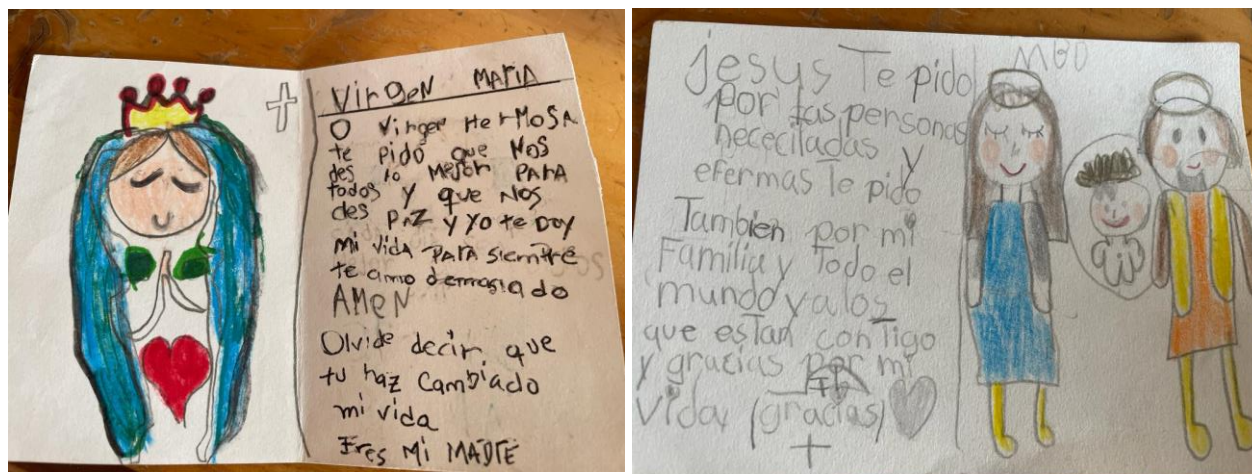 Virgen MaRIA
O Virgen HerMOSA
te pido que NOS
des lo Mejor PARA
todos y que NOS
des PAZ y YO te DOY
mi vida PARA siemPre
te amo demasiado
AMEN
Olvide decir que
tu haz cambiado
mi vida
Eres Mi MADRE
jesus Te pido
por las personas
nececitadas y
efermas Te pido
Tambien por mi
Familia y Todo el
mundo y a los
que estan conTigo
y gracias por mi
vida (gracias)
MBD